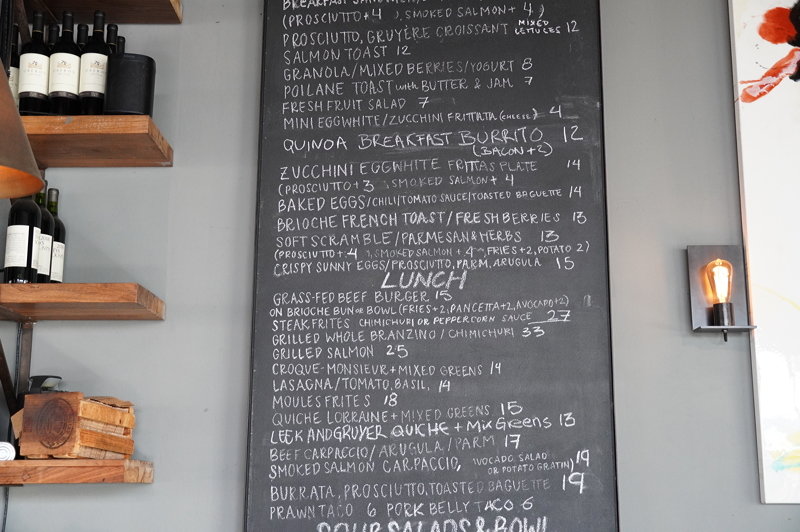 BREAKFAST
(PROSCIUTTO+4 , SMOKED SALMON+ 4)
PROSCIUTTO, GRUYÈRE CROISSANT MIXED LETTUCES 12
SALMON TOAST 12
GRANOLA/MIXED BERRIES/YOGURT 8
POILANE TOAST with BUTTER & JAM 7
FRESH FRUIT SALAD 7
MINI EGGWHITE/ZUCCHINI FRITTATA (CHEESE) 4
QUINOA BREAKFAST BURRITO 12
(BACON+2)
ZUCCHINI EGGWHITE FRITTAS PLATE 14
(PROSCIUTTO+3 , SMOKED SALMON+ 4
BAKED EGGS/CHILI/TOMATO SAUCE/TOASTED BAGUETTE 14
BRIOCHE FRENCH TOAST/FRESH BERRIES 13
SOFT SCRAMBLE/PARMESAN & HERBS 13
(PROSCIUTTO+4 , SMOKED SALMON +4, FRIES+2, POTATO 2)
CRISPY SUNNY EGGS/PROSCIUTTO, PARM, ARUGULA 15
LUNCH
GRASS-FED BEEF BURGER 15
ON BRIOCHE BUN OR BOWL (FRIES+2, PANCETTA+2, AVOCADO+2)
STEAK FRITES CHIMICHURI OR PEPPERCORN SAUCE 27
GRILLED WHOLE BRANZINO / CHIMICHURI 33
GRILLED SALMON 25
CROQUE-MONSIEUR + MIXED GREENS 14
LASAGNA/TOMATO, BASIL, 14
MOULES FRITES 18
QUICHE LORRAINE + MIXED GREENS 15
LEEK AND GRUYER QUICHE + Mix Greens 13
BEEF CARPACCIO/ARUGULA/PARM 17
SMOKED SALMON CARPACCIO, (AVOCADO, SALAD OR POTATO GRATIN) 19
BURRATA, PROSCIUTTO, TOASTED BAGUETTE 19
PRAWN TACO 6 PORK BELLY TACO 6
SOUP SALADS & BOWL